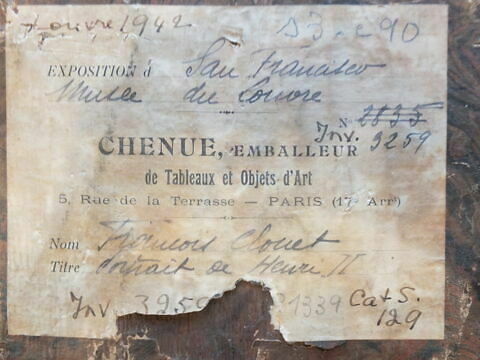 Louvre 1942
EXPOSITION d San Francisco
Musée du Louvre
N 2835
Inv. 3259
CHENUE, EMBALLEUR
de Tableaux et Objets d'Art
5, Rue de la Terrasse — PARIS (17e Arrt)
Nom François Clouet
Titre Portrait de Henri II
Inv. 3259 1339 Cat S.
129